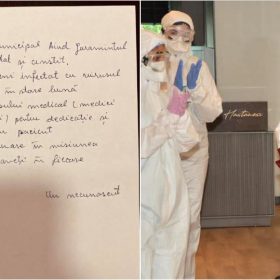 unicipal Aiud Juramintul
al și cinstit,
eni infectat cu virusul
în stare bună
sului medical (medici
i) pentru dedicație și
u pacient
nare în misiunea
anței în ficare
Un necunoscut
Hastanea